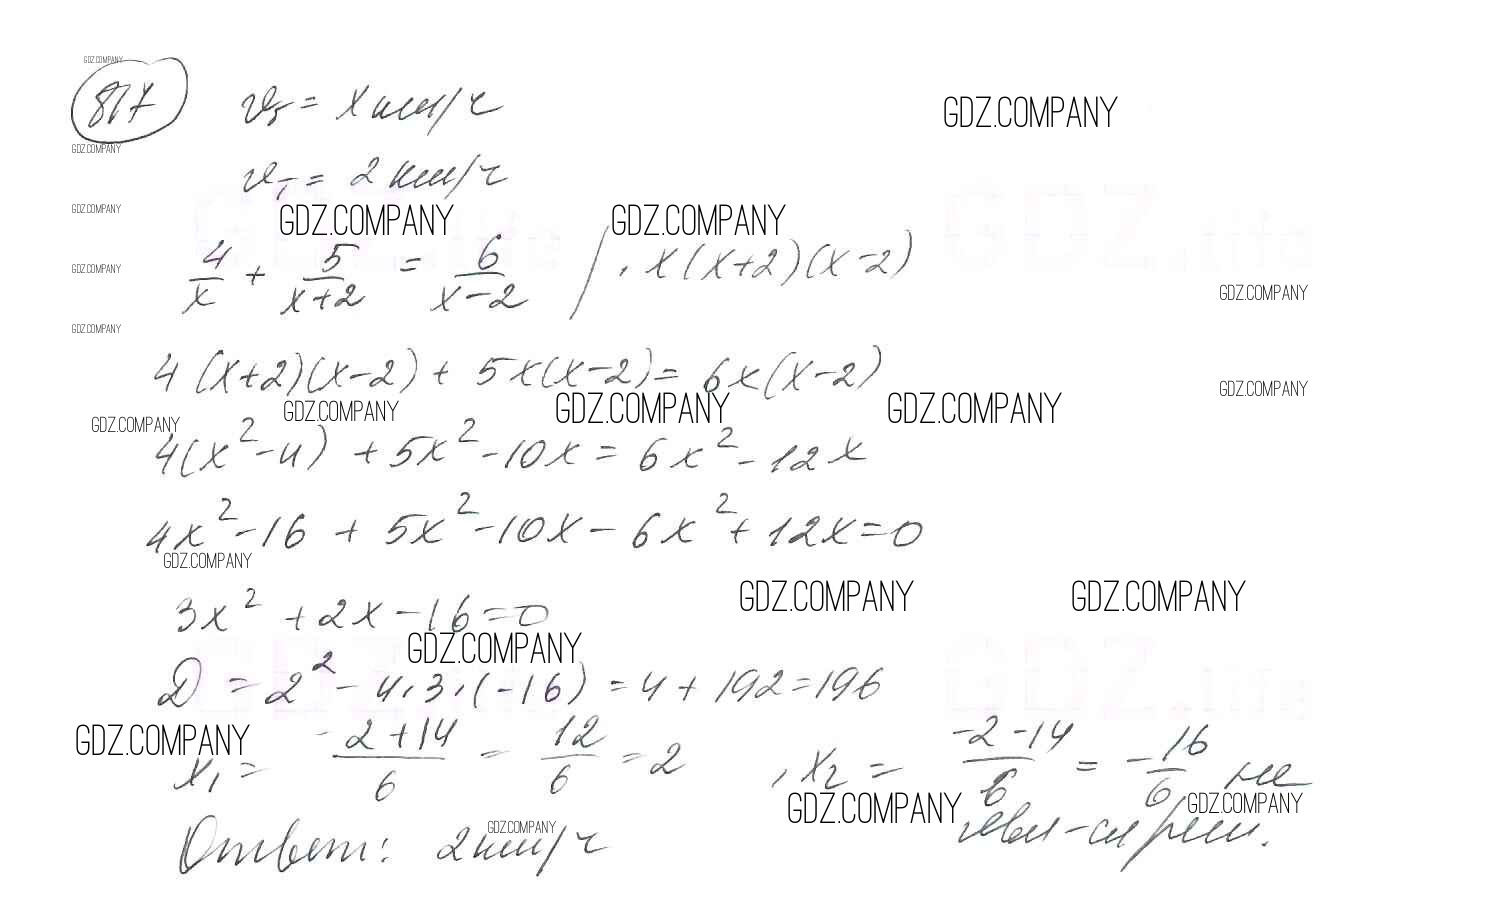 GDZ.COMPANY
817 v₅ = x км/ч GDZ.COMPANY
GDZ.COMPANY
vт = 2 км/ч
GDZ.COMPANY GDZ.COMPANY GDZ.COMPANY
GDZ.life GDZ.life
GDZ.COMPANY 4/x + 5/(x+2) = 6/(x-2) / · x(x+2)(x-2)
GDZ.COMPANY
GDZ.COMPANY
4(x+2)(x-2) + 5x(x-2) = 6x(x-2)
GDZ.COMPANY
GDZ.COMPANY GDZ.COMPANY GDZ.COMPANY GDZ.COMPANY
4(x²-4) + 5x²-10x = 6x²-12x
4x²-16 + 5x²-10x-6x²+12x=0
GDZ.COMPANY
GDZ.COMPANY GDZ.COMPANY
3x²+2x-16=0
GDZ.COMPANY
GDZ.life GDZ.life
D = 2²-4·3·(-16) = 4+192=196
GDZ.COMPANY
x₁ = (-2+14)/6 = 12/6 = 2, x₂ = (-2-14)/6 = -16/6 не
GDZ.COMPANY GDZ.COMPANY
явл-ся реш.
GDZ.COMPANY
Ответ: 2 км/ч